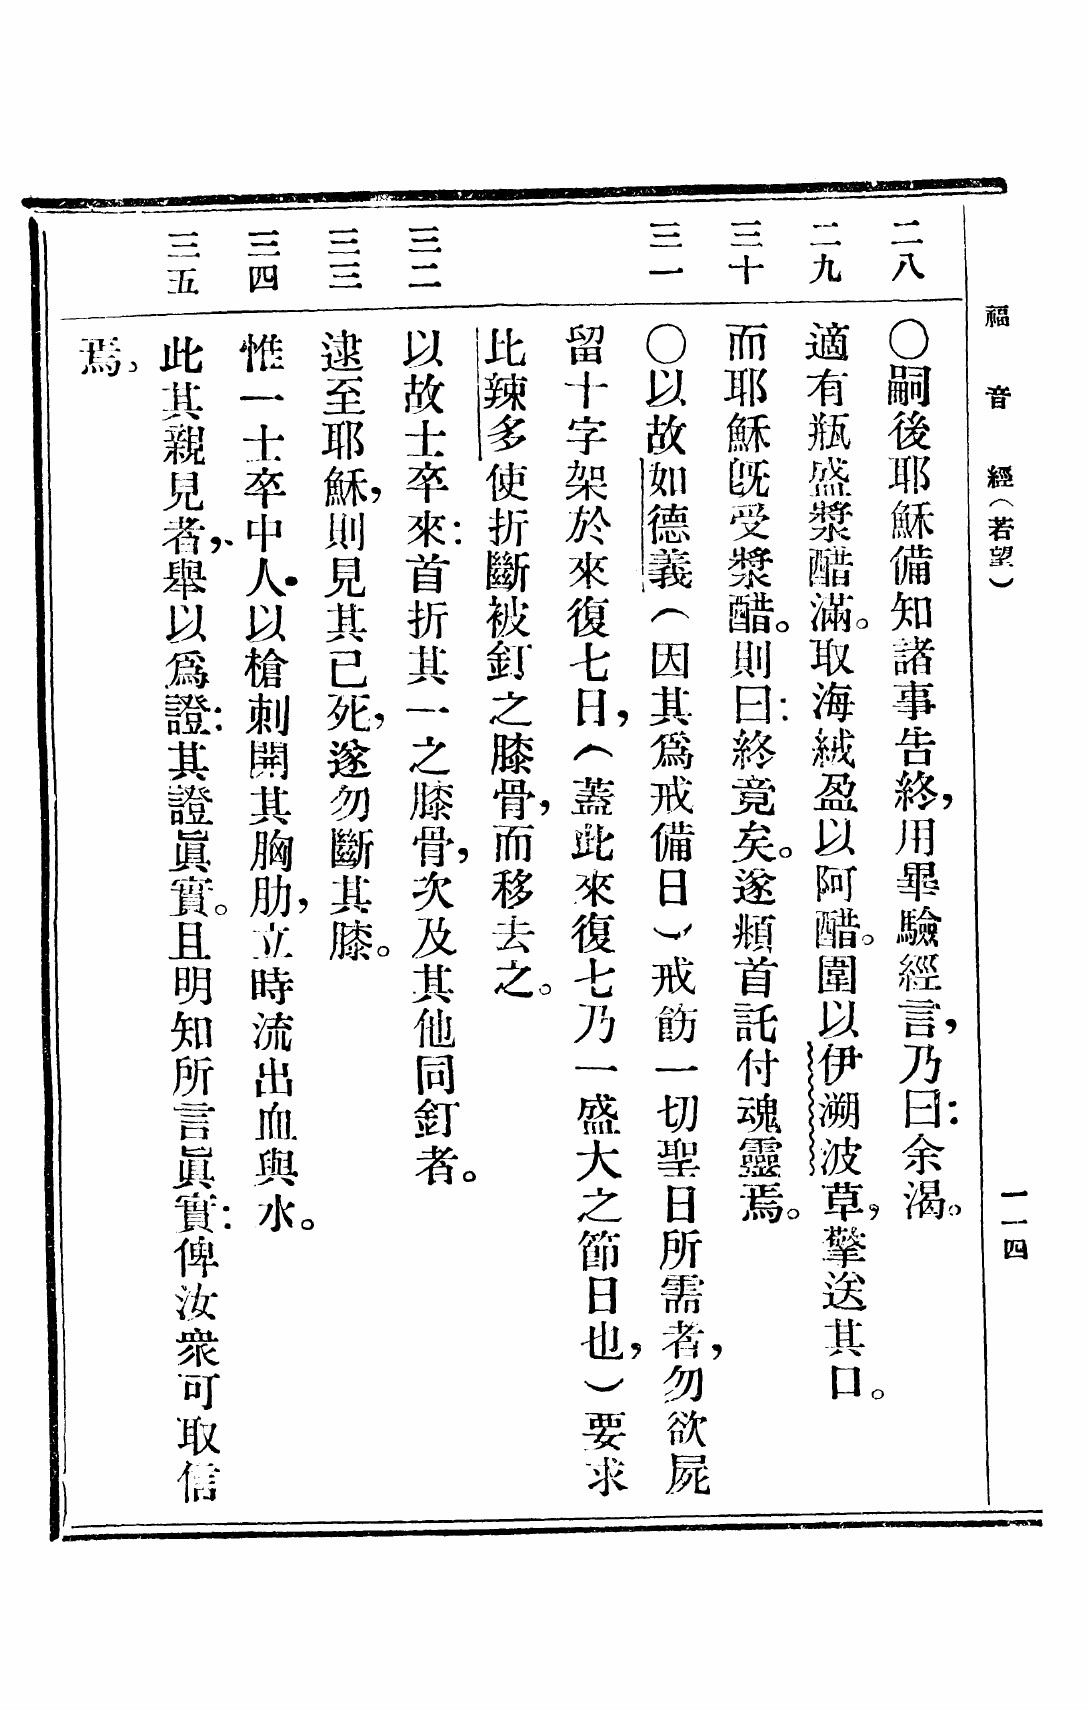 福音經(若望)
一一四
二八
〇嗣後耶穌備知諸事告終,用畢驗經言,乃曰:余渴。
二九
適有瓶盛漿醋滿。取海絨盈以阿醋。圍以伊溯波草,擎送其口。
三十
而耶穌旣受漿醋。則曰:終竟矣。遂頫首託付魂靈焉。
三一
〇以故如德義(因其爲戒備日)戒飭一切聖日所需者,勿欲屍
留十字架於來復七日,(蓋此來復七乃一盛大之節日也,)要求
比辣多使折斷被釘之膝骨,而移去之。
三二
以故士卒來:首折其一之膝骨,次及其他同釘者。
三三
逮至耶穌,則見其已死,遂勿斷其膝。
三四
惟一士卒中人•以槍刺開其胸肋,立時流出血與水。
三五
此其親見者,舉以爲證:其證眞實。且明知所言眞實:俾汝衆可取信
焉,